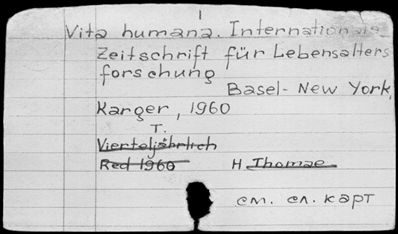 1
Vita humana. Internationale
Zeitschrift für Lebensalters
forschung
Basel-New York,
Karger, 1960
T.
Vierteljährlich
Red 1960 H Thomae
см. сл. карт